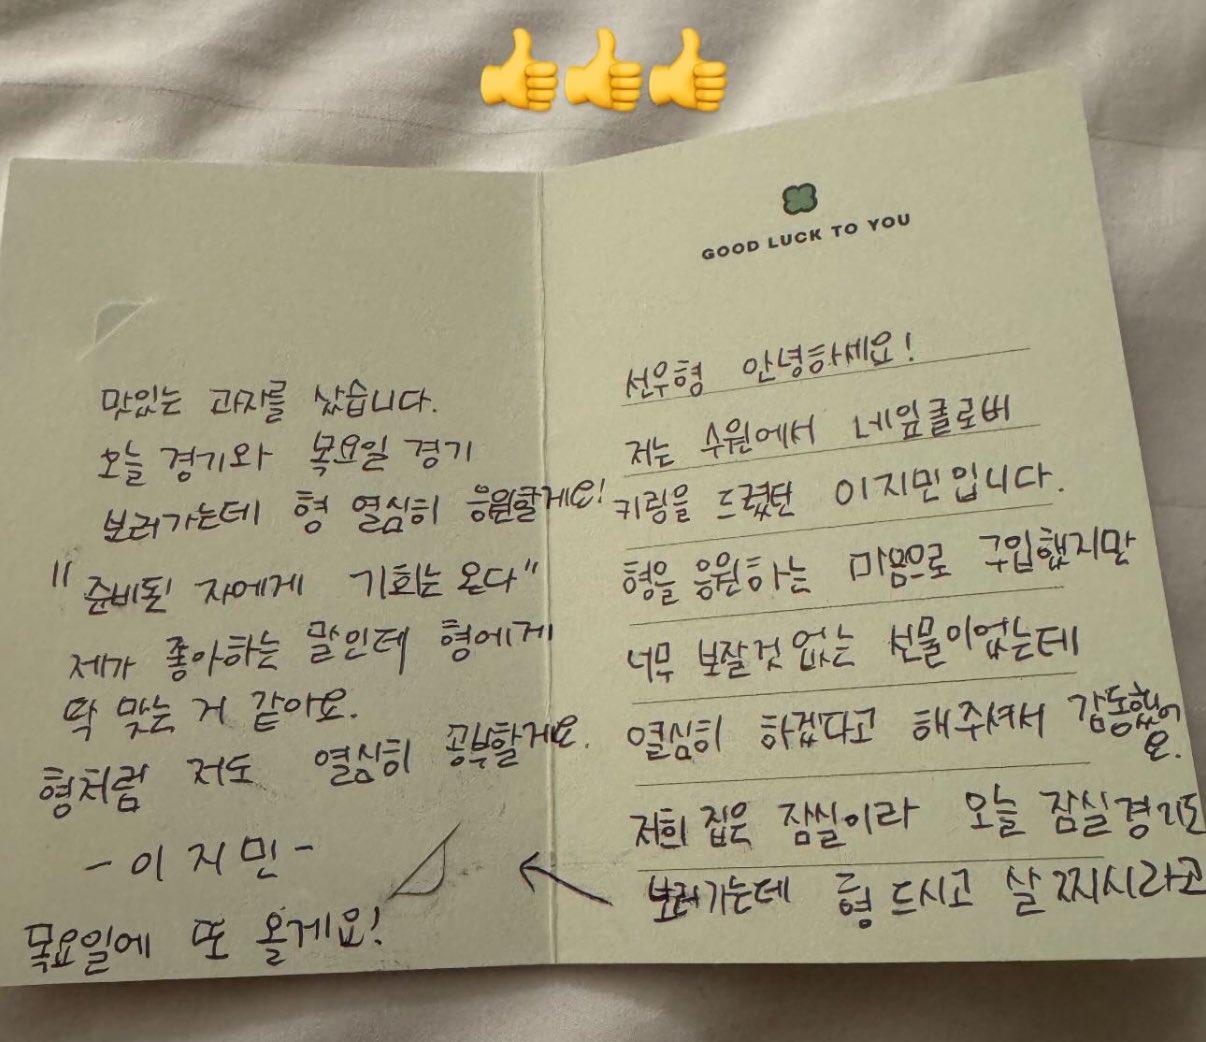 GOOD LUCK TO YOU
선우형 안녕하세요!
저는 수원에서 네잎클로버
키링을 드렸던 이지민입니다.
형을 응원하는 마음으로 구입했지만
너무 보잘것 없는 선물이었는데
열심히 하겠다고 해주셔서 감동했어
요.
저희 집은 잠실이라 오늘 잠실경기도
보러가는데 형 드시고 살 찌시라고
맛있는 과자를 샀습니다.
오늘 경기와 목요일 경기
보러가는데 형 열심히 응원할게요!
"준비된 자에게 기회는 온다"
제가 좋아하는 말인데 형에게
딱 맞는 거 같아요.
형처럼 저도 열심히 공부할게요.
-이지민-
목요일에 또 올게요!